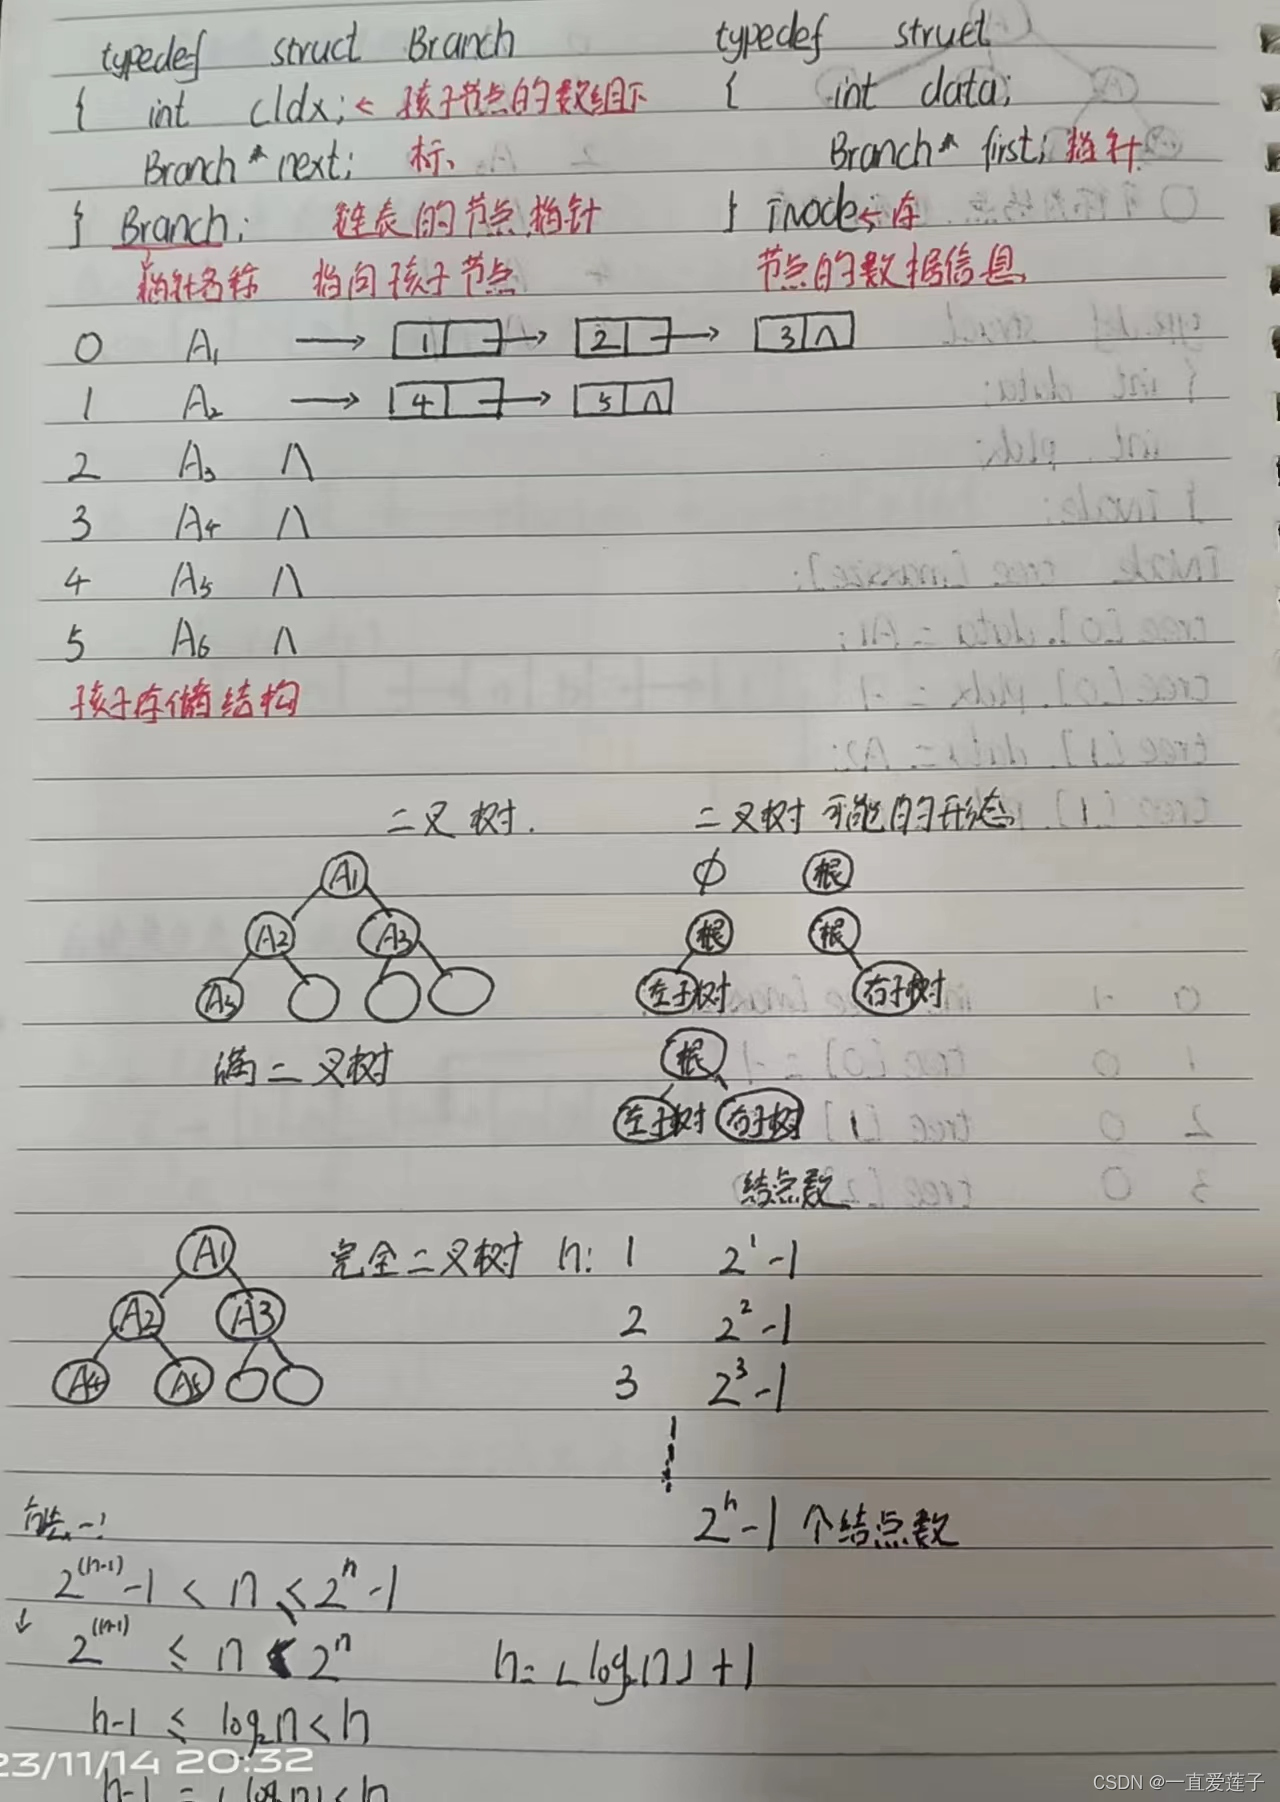 typedef struct Branch
{ int cldx; ← 孩子节点的数组下
Branch * next; 标、
} Branch; 链表的节点指针
指针名称 指向孩子节点
typedef struct
{ int data;
Branch* first; 指针
} TNode ← 存
节点的数据信息
0 A₁ → 1 → 2 → 3 ∧
1 A₂ → 4 → 5 ∧
2 A₃ ∧
3 A₄ ∧
4 A₅ ∧
5 A₆ ∧
孩子存储结构
二叉树.
A1
A2 A3
满二叉树
二叉树可能的形态
∅ 根
根 根
左子树 右子树
根
左子树 右子树
结点数
完全二叉树 h: 1 2¹-1
2 2²-1
3 2³-1
2ʰ-1 个结点数
A1
A2 A3
A4 A5
2⁽ʰ⁻¹⁾-1 < n ≤ 2ʰ-1
↓ 2⁽ʰ⁻¹⁾ ≤ n < 2ʰ h=⌊log₂n⌋+1
h-1 ≤ log₂n < h
h-1 = ⌊log₂n⌋ < h
23/11/14 20:32
CSDN @一直爱莲子